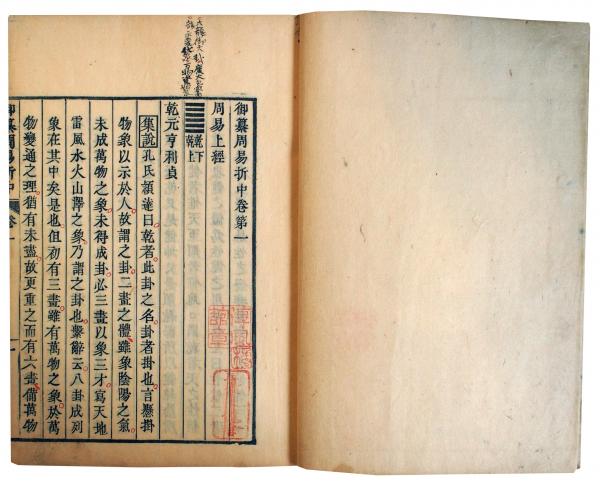 御纂周易折中卷第一
周易上經
乾下
乾上
乾元亨利貞
集說孔氏穎達曰乾者此卦之名卦者掛也言懸掛
物象以示於人故謂之卦二畫之體雖象陰陽之氣
未成萬物之象未得成卦必三畫以象三才寫天地
雷風水火山澤之象乃謂之卦也繫辭云八卦成列
象在其中矣是也但初有三畫雖有萬物之象於萬
物變通之理猶有未盡故更重之而有六畫備萬物
御纂周易折中 卷一 一